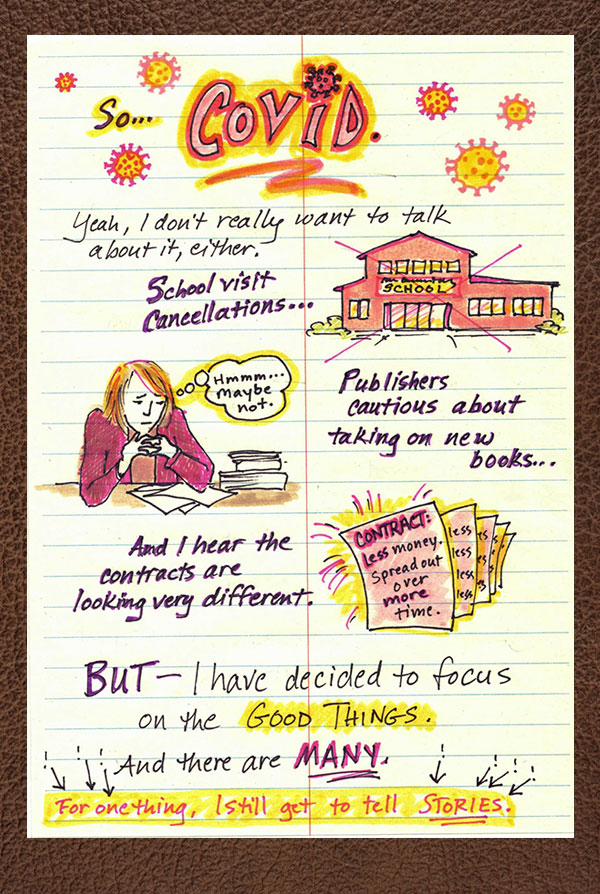 So... COVID.
Yeah, I don't really want to talk
about it, either.
School visit
Cancellations...
Elementary
SCHOOL
Hmmm...
Maybe
not.
Publishers
cautious about
taking on new
books...
And I hear the
contracts are
looking very different.
CONTRACT:
Less money.
Spread out
over
more
time.
less
less
less
less
BUT - I have decided to focus
on the GOOD THINGS.
And there are MANY.
For one thing, I still get to tell STORIES.